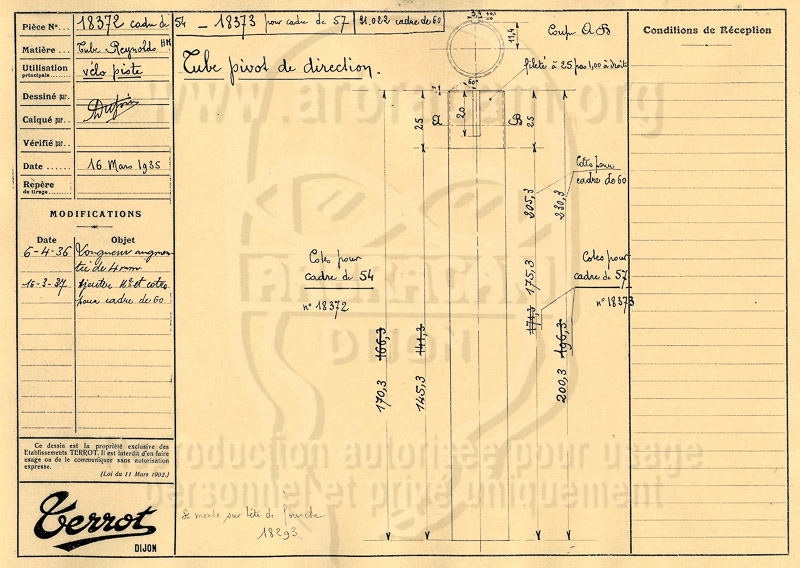 Pièce N° 18372 cadre de 54 - 18373 pour cadre de 57 21.022 cadre de 60
Matière Tube Reynolds HM
Utilisation principale vélo piste
Dessiné par
Calqué par
Vérifié par
Date 16 Mars 1935
Repère de tirage
MODIFICATIONS
Date Objet
6-4-36 Longueur augmen-
tée de 4mm
16-3-37 ajouter N° et cotes
pour cadre de 60
Ce dessin est la propriété exclusive des
Etablissements TERROT. Il est interdit d'en faire
usage ou de le communiquer sans autorisation
expresse.
(Loi du 11 Mars 1902.)
Terrot
DIJON
Tube pivot de direction.
11,4
Coupe AB
fileté à 25 pas 1,00 à droite
60°
25
A
20
B
25
Cotes pour
cadre de 60
205,3
230,3
Cotes pour
cadre de 54
n° 18372
Cotes pour
cadre de 57
n° 18373
166,3
170,3
141,3
145,3
171,3
175,3
196,3
200,3
Se monte sur tête de fourche
18293
Conditions de Réception
www.arbracam.org
ARBRACAM
DIJON
reproduction autorisée pour usage
personnel et privé uniquement